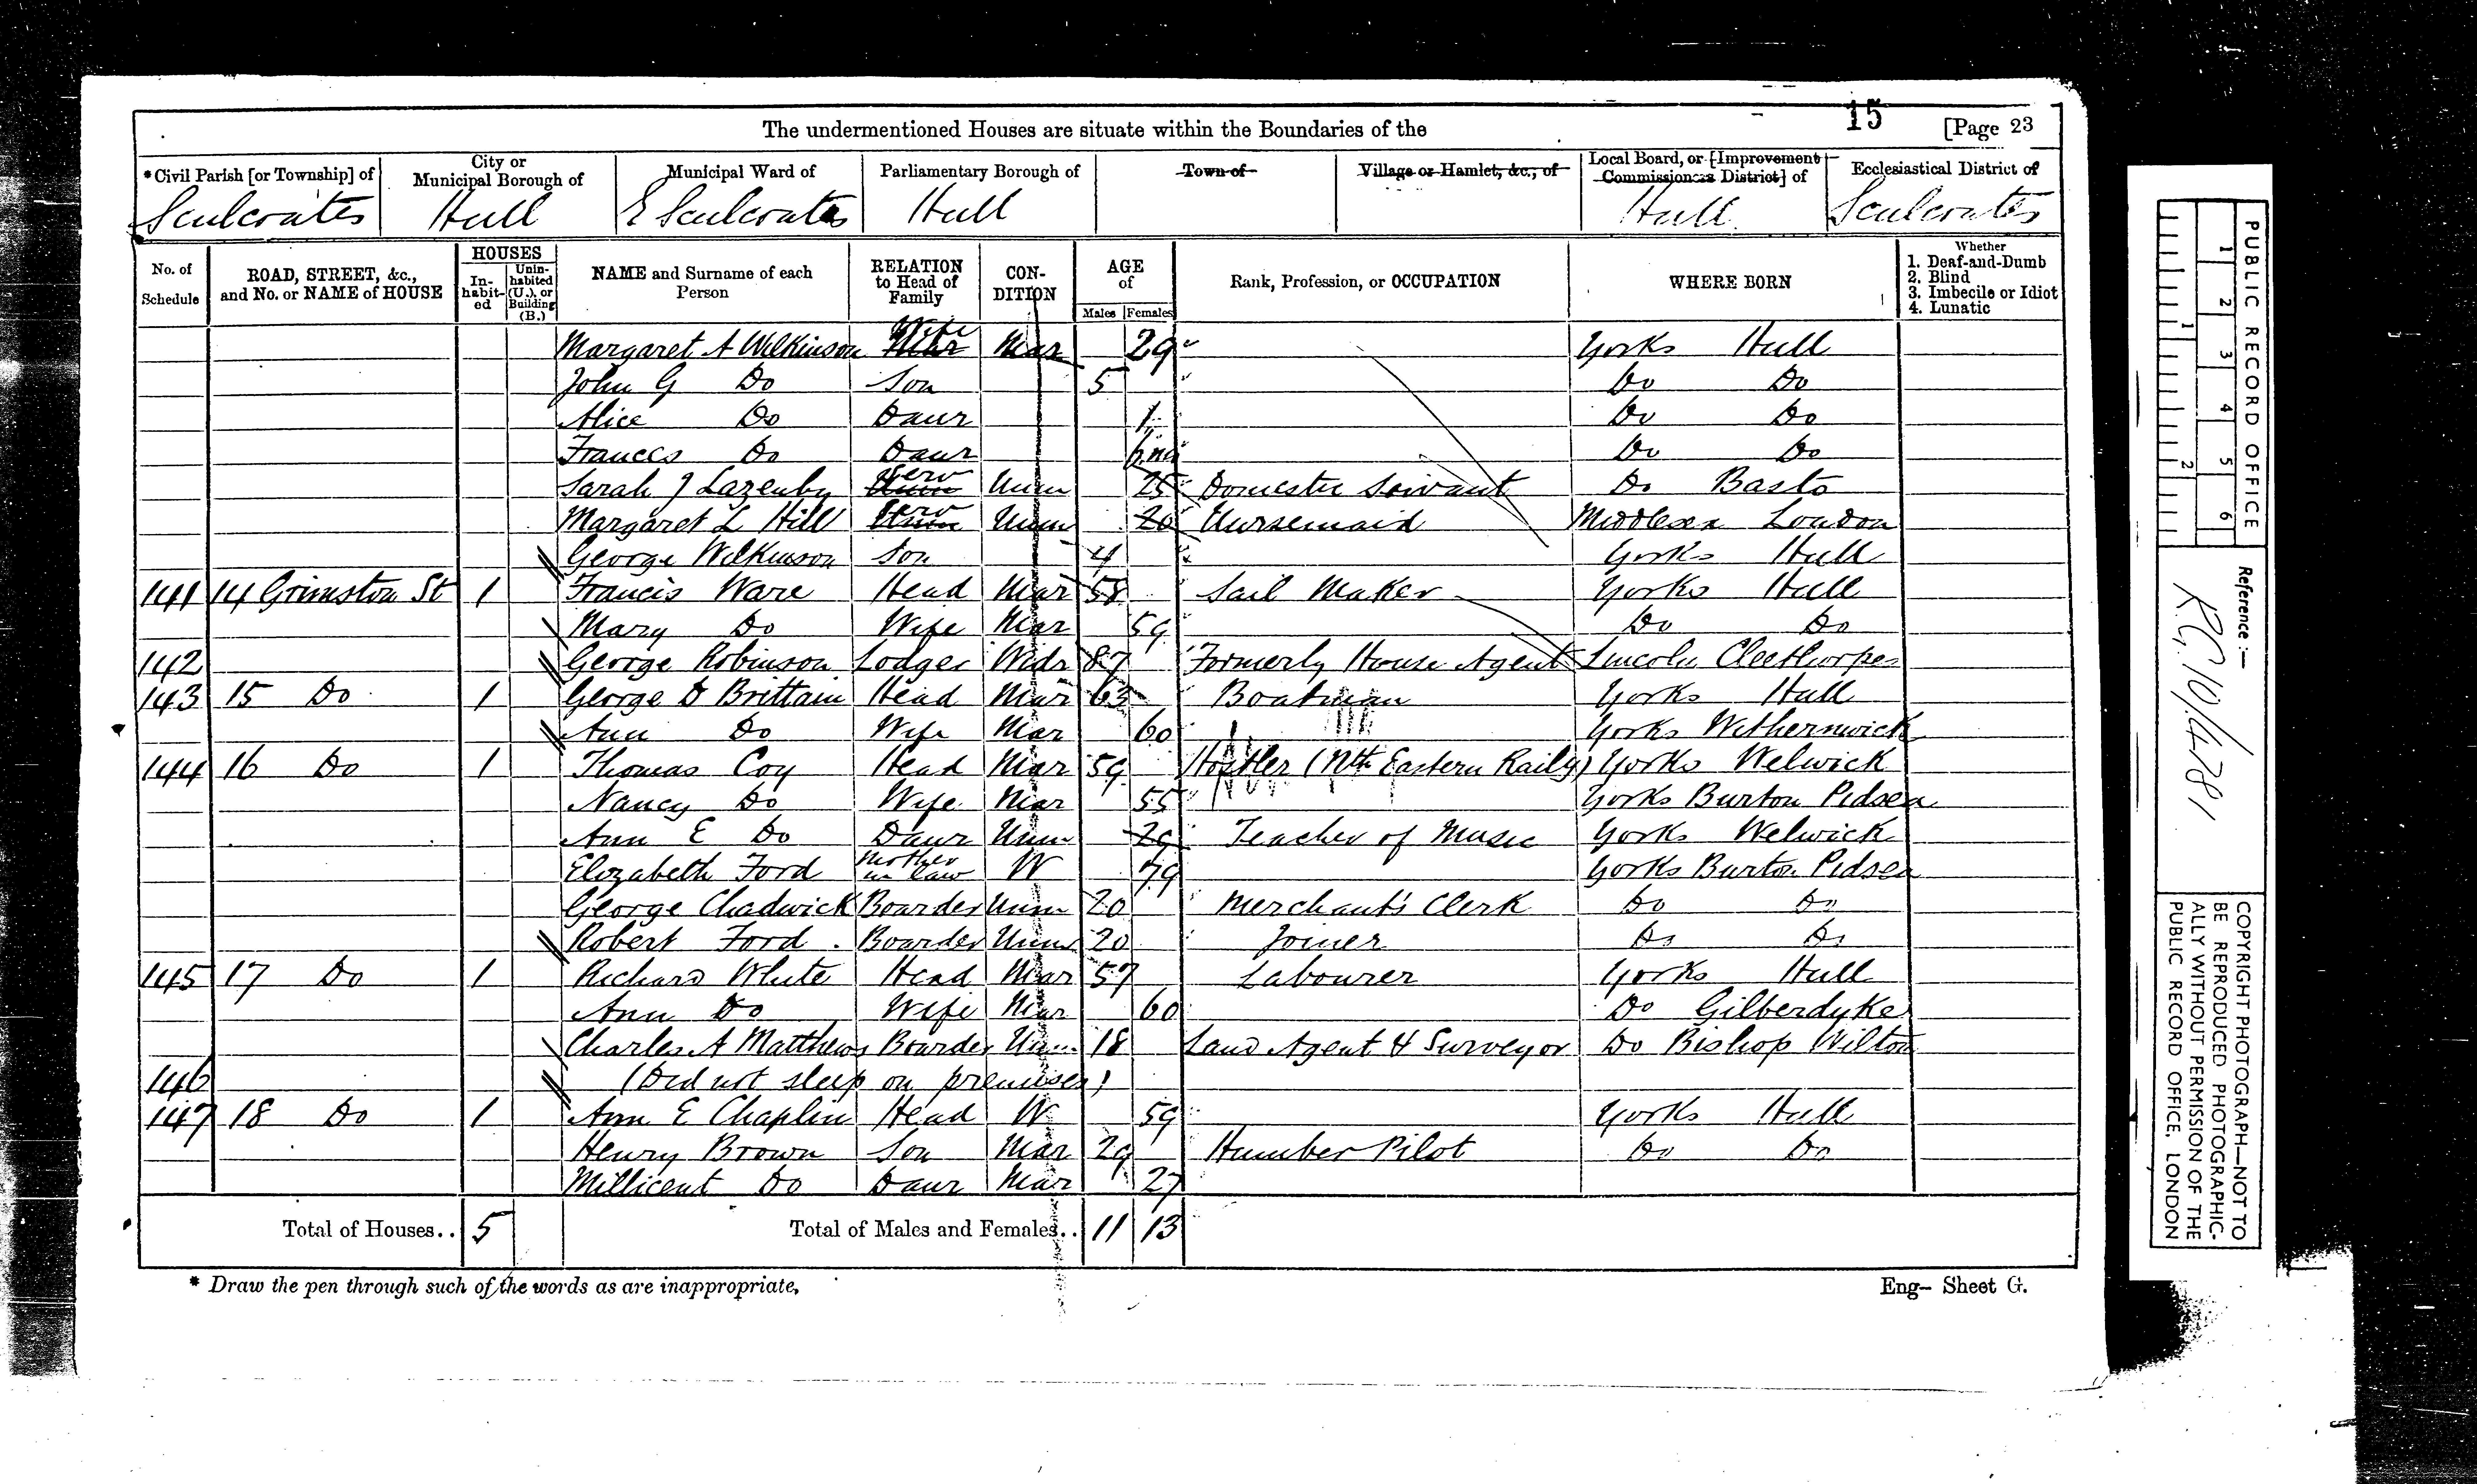 15
The undermentioned Houses are situate within the Boundaries of the [Page 23
*Civil Parish [or Township] of City or Municipal Borough of Municipal Ward of Parliamentary Borough of Town of Village or Hamlet, &c., of Local Board, or [Improvement Commissioners District] of Ecclesiastical District of
Sculcoates Hull E Sculcoates Hull Hull Sculcoates
No. of Schedule ROAD, STREET, &c., and No. or NAME of HOUSE HOUSES Inhabited Uninhabited (U.), or Building (B.) NAME and Surname of each Person RELATION to Head of Family CONDITION AGE of Males Females Rank, Profession, or OCCUPATION WHERE BORN Whether 1. Deaf-and-Dumb 2. Blind 3. Imbecile or Idiot 4. Lunatic
Margaret A Wilkinson Wife Mar 29 Yorks Hull
John G Do Son 5 Do Do
Alice Do Daur 1 Do Do
Frances Do Daur 6 mo Do Do
Sarah J Lazenby Serv Unm 25 Domestic Servant Do
Margaret L Hill Serv Unm 20 Nursemaid Middlesex London
George Wilkinson Son 4 Yorks Hull
141 14 Grimston St 1 Francis Ware Head Mar 58 Sail Maker Yorks Hull
Mary Do Wife Mar 59 Do Do
142 George Robinson Lodger Widr 87 Formerly House Agent Lincoln Cleethorpes
143 15 Do 1 George D Brittain Head Mar 63 Boatman Yorks Hull
Ann Do Wife Mar 60 Yorks Withernwick
144 16 Do 1 Thomas Coy Head Mar 59 Hostler (Nth Eastern Raily) Yorks Welwick
Nancy Do Wife Mar 55 Yorks Burton Pidsea
Ann E Do Daur Unm 29 Teacher of Music Yorks Welwick
Elizabeth Ford Mother in law W 79 Yorks Burton Pidsea
George Chadwick Boarder Unm 20 Merchant's Clerk Do Do
Robert Ford Boarder Unm 20 Joiner Do Do
145 17 Do 1 Richard White Head Mar 57 Labourer Yorks Hull
Ann Do Wife Mar 60 Do Gilberdyke
Charles A Matthews Boarder Unm 18 Land Agent & Surveyor Do Bishop Wilton
146 (Did not sleep on premises)
147 18 Do 1 Ann E Chaplin Head W 59 Yorks Hull
Henry Brown Son Mar 29 Humber Pilot Do Do
Millicent Do Daur Mar 27
Total of Houses.. 5 Total of Males and Females.. 11 13
* Draw the pen through such of the words as are inappropriate. Eng- Sheet G.
PUBLIC RECORD OFFICE
1 2 3 4 5 6
1 2
Reference:-
RG 10/4781
COPYRIGHT PHOTOGRAPH—NOT TO
BE REPRODUCED PHOTOGRAPHIC-
ALLY WITHOUT PERMISSION OF THE
PUBLIC RECORD OFFICE, LONDON